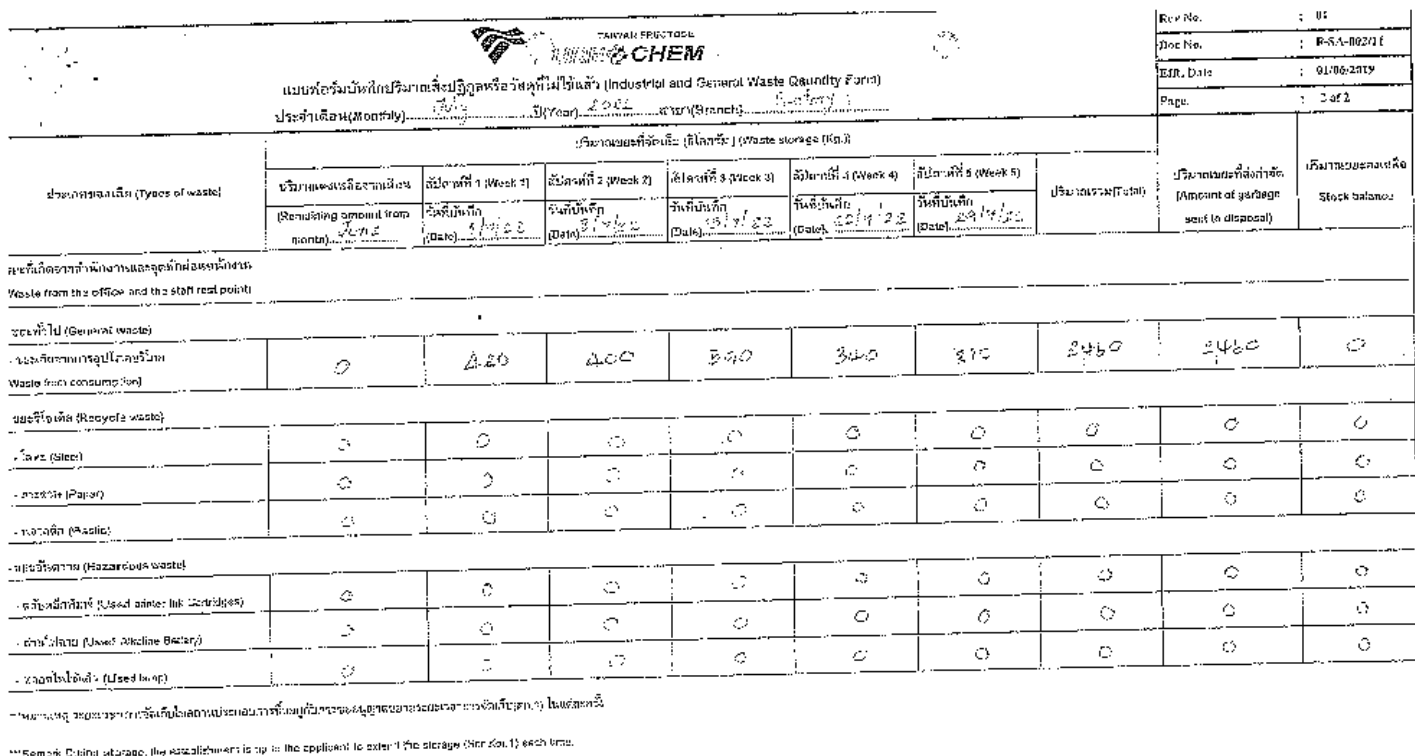 TAIWAN FRUCTOSE
CHEM
Rev No. : 01
Doc No. : F-SA-002/1
Eff. Date : 01/06/2019
Page. : 2 of 2
แบบฟอร์มบันทึกปริมาณสิ่งปฏิกูลหรือวัสดุที่ไม่ใช้แล้ว (Industrial and General Waste Qauntity Form)
ประจำเดือน(Monthly) July ปี(Year) 2022 สาขา(Branch)
ประเภทของเสีย (Types of waste)
ปริมาณขยะที่จัดเก็บ (กิโลกรัม) (Waste storage (Kg.))
ปริมาณคงเหลือจากเดือน (Remaining amount from month) June
สัปดาห์ที่ 1 (Week 1) วันที่บันทึก (Date)
สัปดาห์ที่ 2 (Week 2) วันที่บันทึก (Date)
สัปดาห์ที่ 3 (Week 3) วันที่บันทึก (Date) 15/7/22
สัปดาห์ที่ 4 (Week 4) วันที่บันทึก (Date) 22/7/22
สัปดาห์ที่ 5 (Week 5) วันที่บันทึก (Date) 29/7/22
ปริมาณรวม(Total)
ปริมาณขยะที่ส่งกำจัด (Amount of garbage sent to disposal)
ปริมาณขยะคงเหลือ Stock balance
ขยะที่เกิดจากสำนักงานและจุดพักผ่อนพนักงาน
Waste from the office and the staff rest point
ขยะทั่วไป (General waste)
- ขยะเกิดจากการอุปโภคบริโภค
Waste from consumption) 0 420 400 340 2460 2460 0
ขยะรีไซเคิล (Recycle waste)
- โลหะ (Steel) 0 0 0 0 0 0 0 0 0
- กระดาษ (Paper) 0 0 0 0 0 0 0 0 0
- พลาสติก (Plastic) 0 0 0 0 0 0 0 0 0
- ขยะอันตราย (Hazardous waste)
- ตลับหมึกพิมพ์ (Used printer Ink Cartridges) 0 0 0 0 0 0 0 0 0
- ถ่านไฟฉาย (Used Alkaline Battery) 0 0 0 0 0 0 0 0 0
- หลอดไฟใช้แล้ว (Used lamp) 0 0 0 0 0 0 0 0 0
**หมายเหตุ ระยะเวลาการจัดเก็บในสถานประกอบการขึ้นอยู่กับการขออนุญาตขยายระยะเวลาการจัดเก็บ(สก.1) ในแต่ละครั้ง
storage, the establishment is up to the applicant to extent the storage each time.